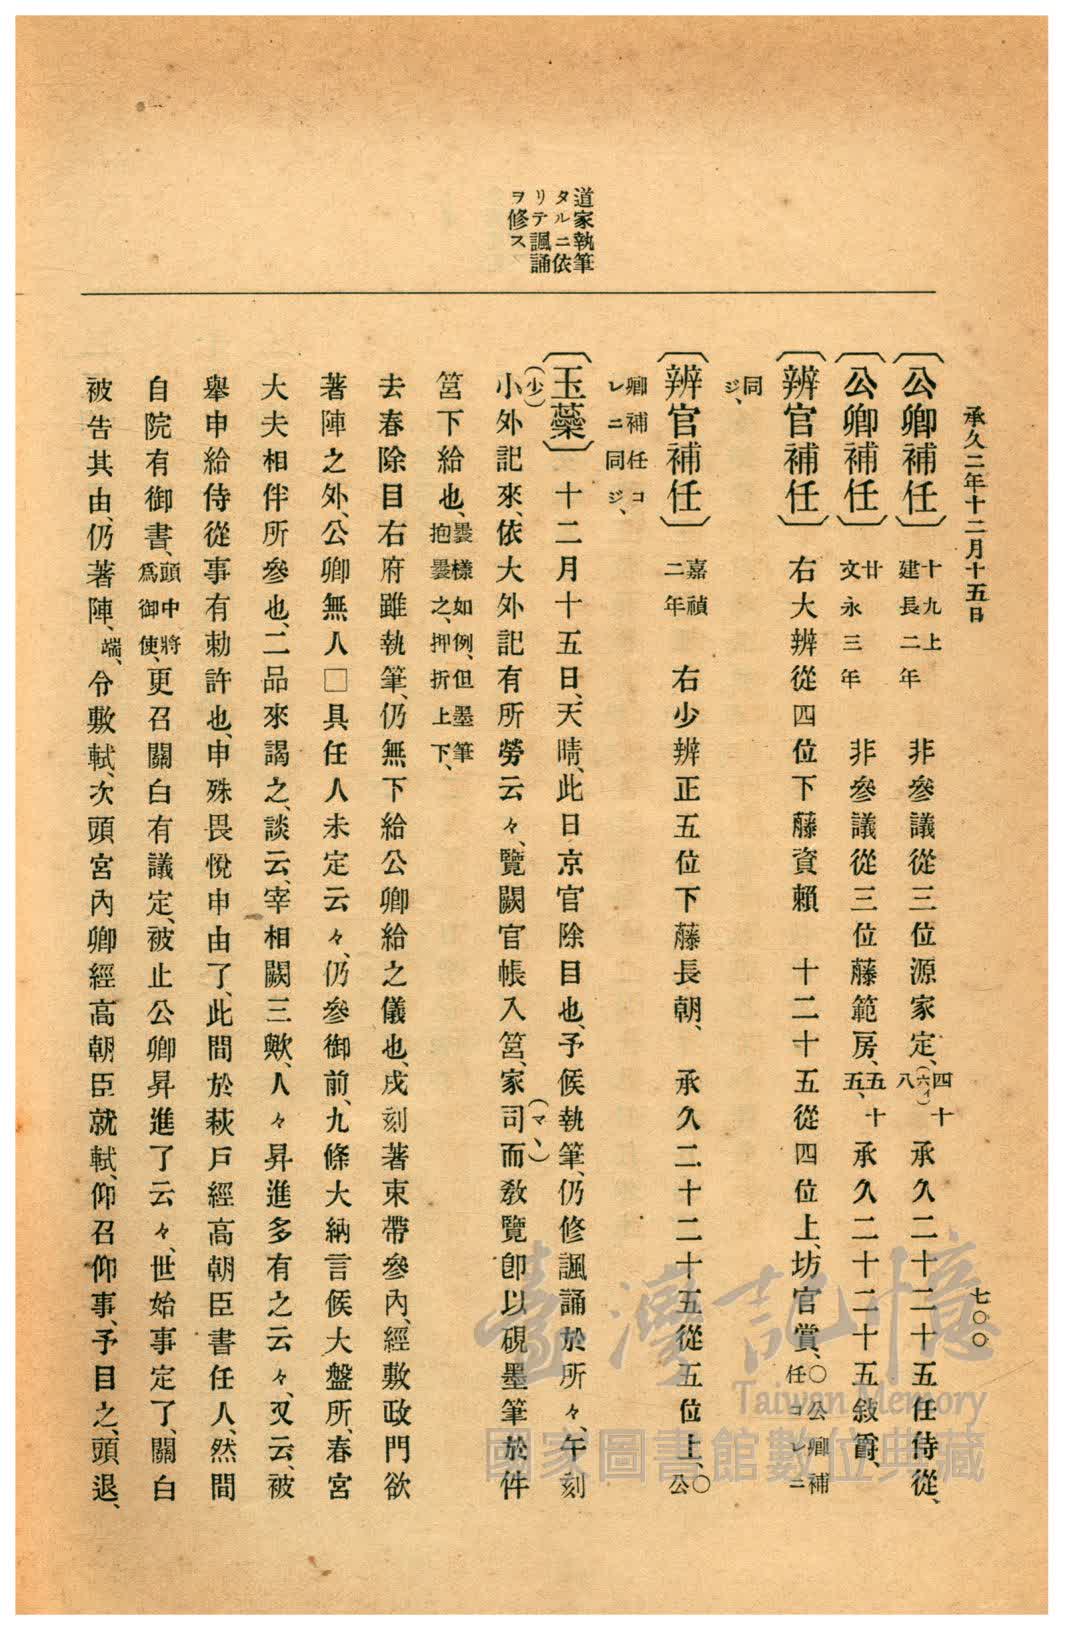 承久二年十二月十五日
七〇〇
道家執筆
タルニ依
リテ諷誦
ヲ修ス
〔公卿補任〕十九上建長二年 非參議從三位源家定、四十(六イ)八 承久二十二十五任侍從、
〔公卿補任〕廿文永三年 非參議從三位藤範房、五十五、承久二十二十五敍爵、
〔辨官補任〕 右大辨從四位下藤資賴 十二十五從四位上、坊官賞、〇公卿補任コレニ
同ジ、
〔辨官補任〕嘉禎二年 右少辨正五位下藤長朝、 承久二十二十五從五位上、〇公
卿補任コレニ同ジ、
〔玉蘂〕 十二月十五日、天晴、此日京官除目也、予候執筆、仍修諷誦於所々、午刻
小(少)外記來、依大外記有所勞云々、覽闕官帳入筥、家司而(マヽ)敎覽卽以硯墨筆於件
筥下給也、曩樣如例、但墨筆抱曩之、押折上下、
去春除目右府雖執筆、仍無下給公卿給之儀也、戌刻著束帶參內、經敷政門欲
著陣之外、公卿無人□具任人未定云々、仍參御前、九條大納言候大盤所、春宮
大夫相伴所參也、二品來謁之、談云、宰相闕三歟、人々昇進多有之云々、又云、被
擧申給侍從事有勅許也、申殊畏悅申由了、此間於萩戶經高朝臣書任人、然間
自院有御書、頭中將爲御使、更召關白有議定、被止公卿昇進了云々、世始事定了、關白
被告其由、仍著陣、端、令敷軾、次頭宮內卿經高朝臣就軾、仰召仰事、予目之、頭退、
臺灣記憶
Taiwan Memory
國家圖書館數位典藏